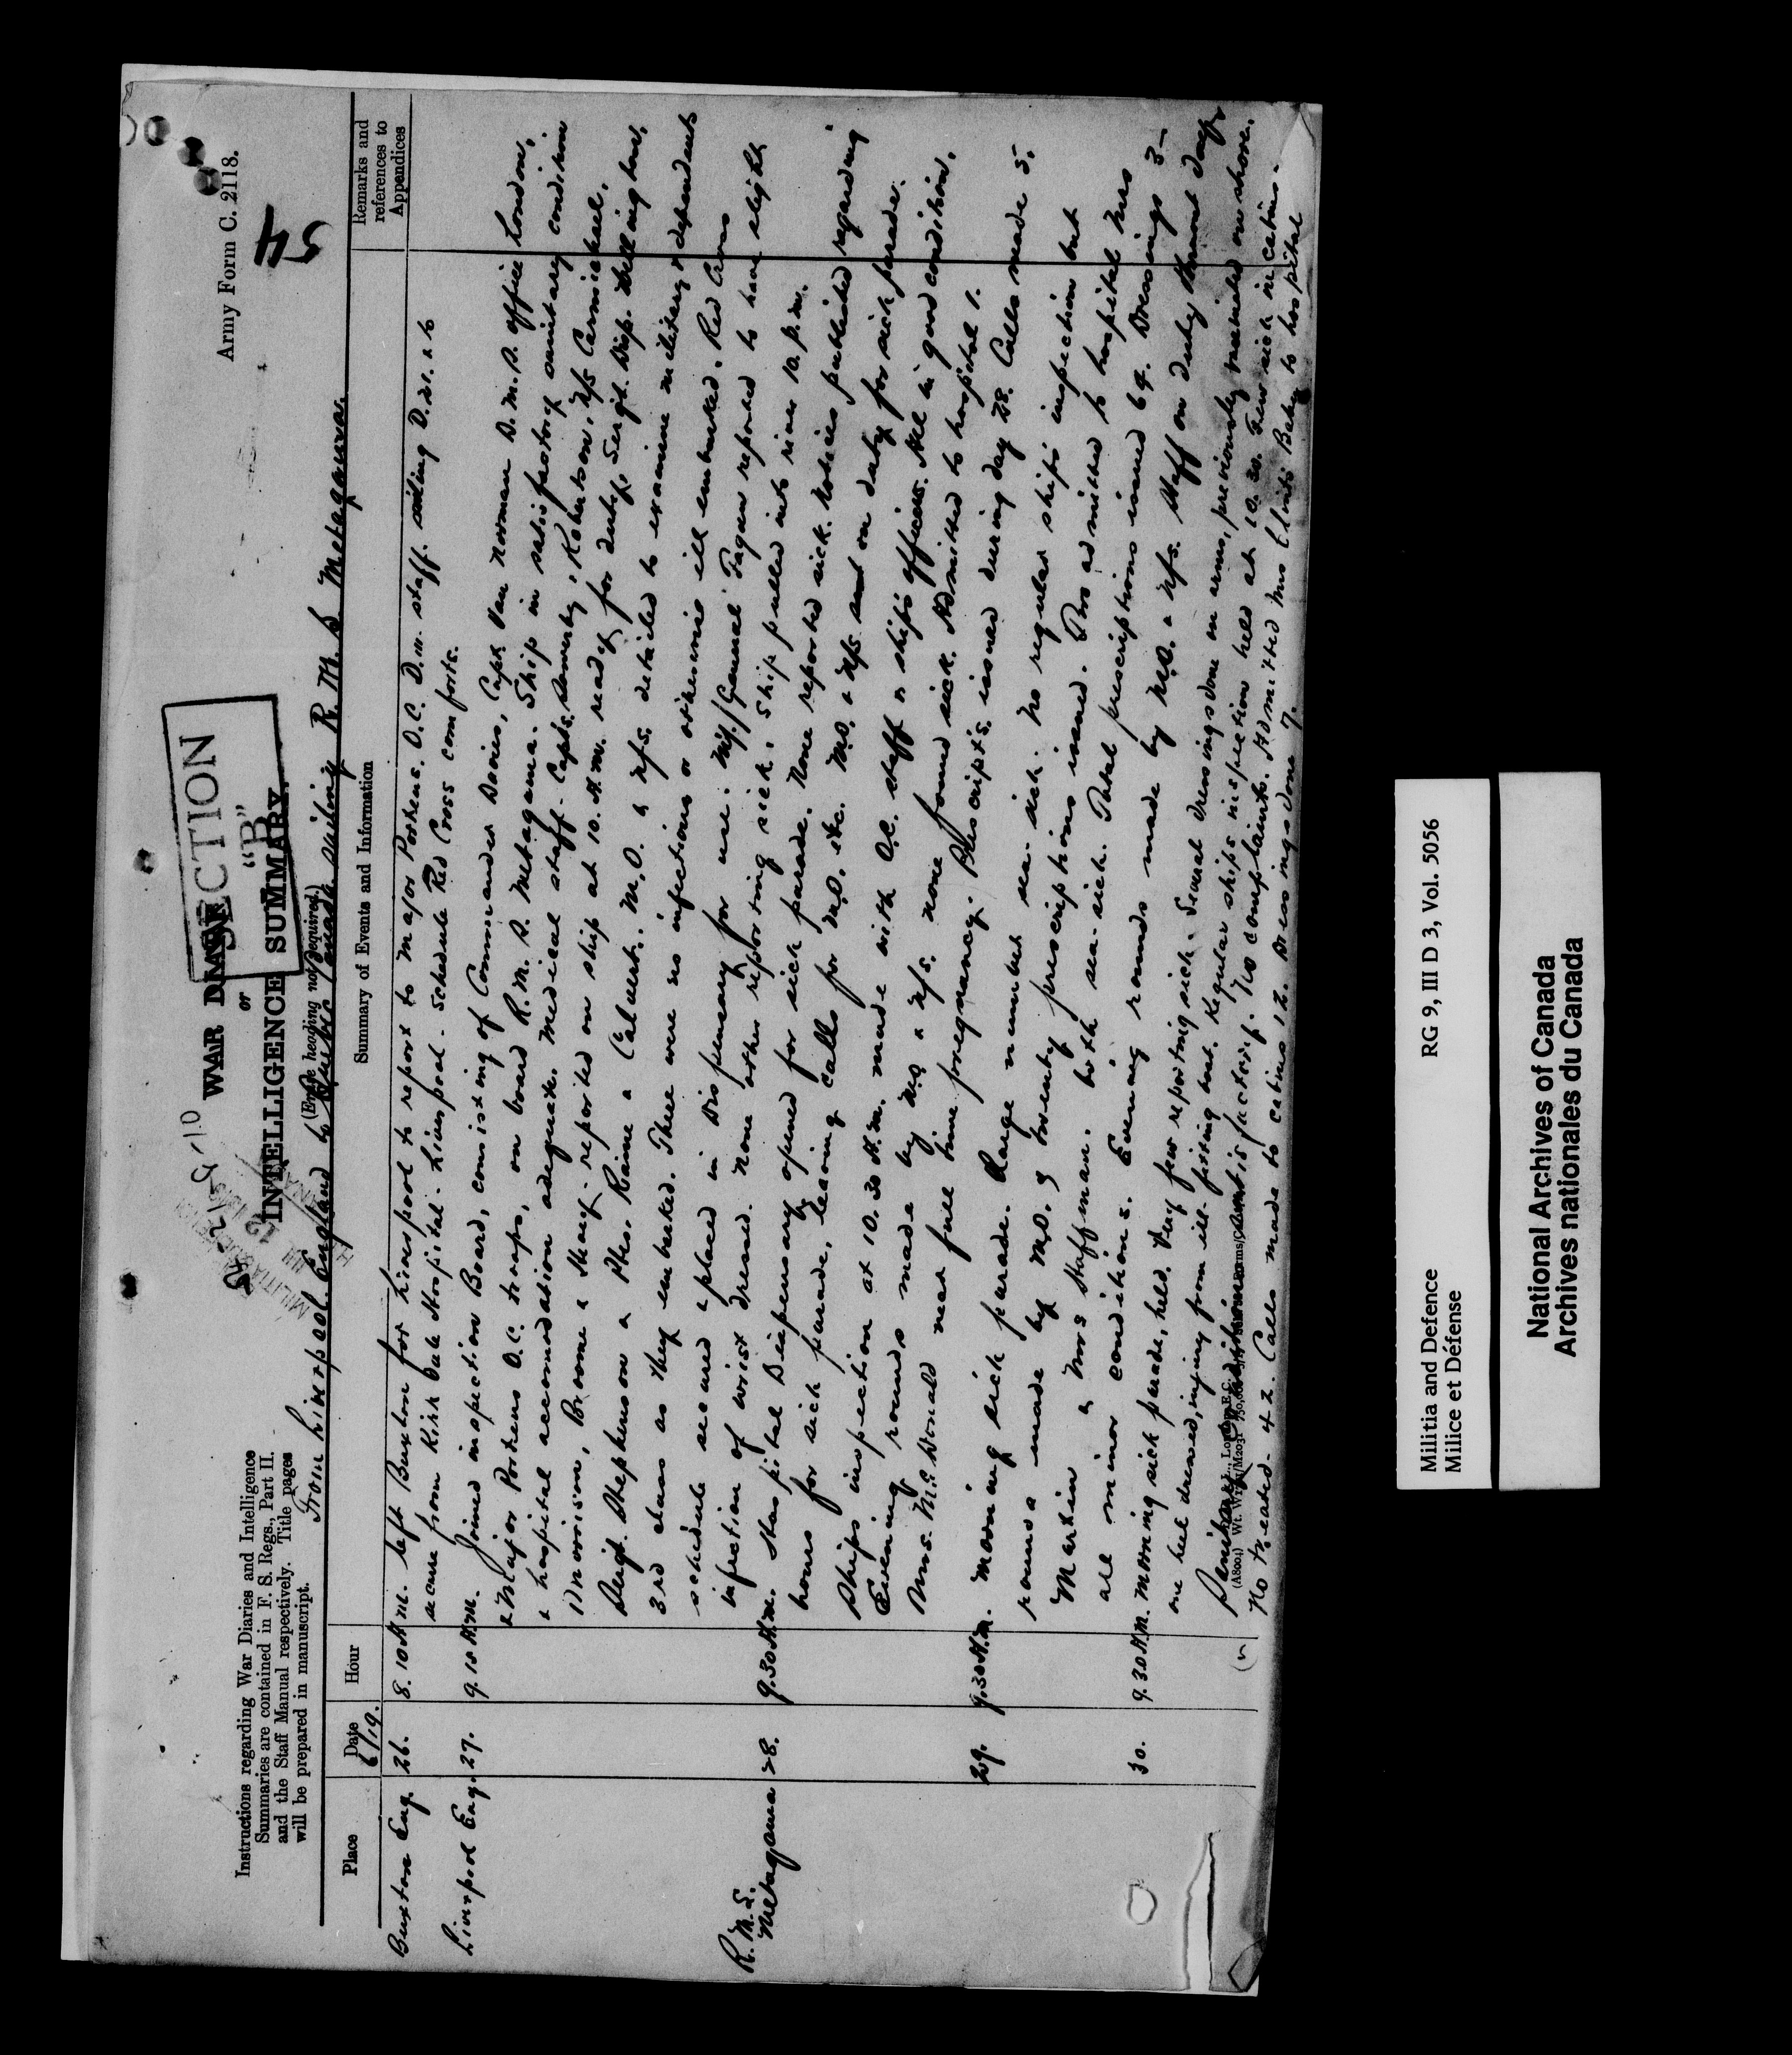 Army Form C. 2118.
54
WAR DIARY
or
INTELLIGENCE SUMMARY.
(Erase heading not required.)
SECTION
"B"
Instructions regarding War Diaries and Intelligence
Summaries are contained in F. S. Regs., Part II.
and the Staff Manual respectively. Title pages
will be prepared in manuscript.
From Liverpool. England to Quebec Canada sailing R. M. S Metagama.
Place
Date
6/19.
Hour
Summary of Events and Information
Remarks and
references to
Appendices
Buxton Eng. 26. 8.10 A.M. left Buxton for Liverpool to report to Major Porteus. O.C. D.w. staff. sailing D.21. & to
secure from Kirk Dale Hospital. Liverpool. Schedule Red Cross comforts.
Liverpool Eng. 27. 9.15 A.M. Joined inspection Board, consisting of Commander Davies, Capt Van Norman D.M.S. office London,
& Major Porteus O.C. troops, on board R.M.S. Metagama. Ship in satisfactory sanitary condition
& hospital accomodation adequate. Medical staff - Capts. Robertson, N/S Carmichael,
Morrison, Broome & reported on ship at 10. A.M. ready for duty. Sergt. Disp. Wellington,
Sergt. Stephenson & Ptes. Raine & Calvert. M.O. & N/S. detailed to examine military & dependents
3rd class as they embarked. There were no infectious or otherwise ill embarked. Red Cross
schedule secured & placed in Dispensary for use. reported to have slight
infection of wrist dressed. None other reporting sick. Ship pulled into river 10. P.M.
R.M.S. Metagama 28. 9.30 A.M. Hospital Dispensary opened for sick parade. None reported sick. Notices published regarding
hours for sick parade, leaving calls for M.O. etc. M.O. & N/S on duty for sick parade.
Ships inspection at 10.30 A.M. made with O.C. staff & ship's officers. All in good condition.
Evening rounds made by M.O. & N/S. none found sick. Admitted to hospital 1.
Mrs. McDonald near full time pregnancy. Prescripts. issued during day 28. Calls made 5.
29. 9.30 A.M. Morning sick parade. Large number sea-sick. No regular ships inspection but
rounds made by M.O. & twenty prescriptions issued. Two admitted to hospital Mrs
Martin & Mrs Staffman. both sea-sick. Total prescriptions issued 64. Dressings 3-
all minor conditions. Evening rounds made by M.O. & N/S. Staff on duty
30. 9.30 A.M. Morning sick parade, held. Very few reporting sick. Several dressings done on arms, previously on shore,
one heel dressed, injury from ill-fitting boot. Regular ships inspection held at 10.30. Few sick in cabins.
Sanitary satisfactory. No complaints. Admitted Mrs Baker to hospital
No treated - 42. Calls made to cabins 12. Dressings done 7.
Militia and Defence
Milice et Défense
RG 9, III D 3, Vol. 5056
National Archives of Canada
Archives nationales du Canada